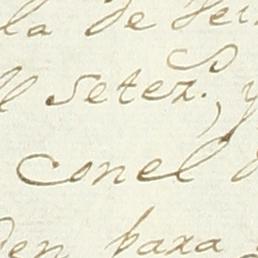 la de Vein
setez.^s, y
conel
den para